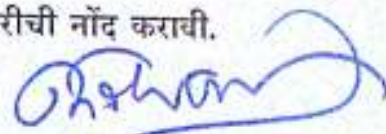 रीची नोंद करावी.